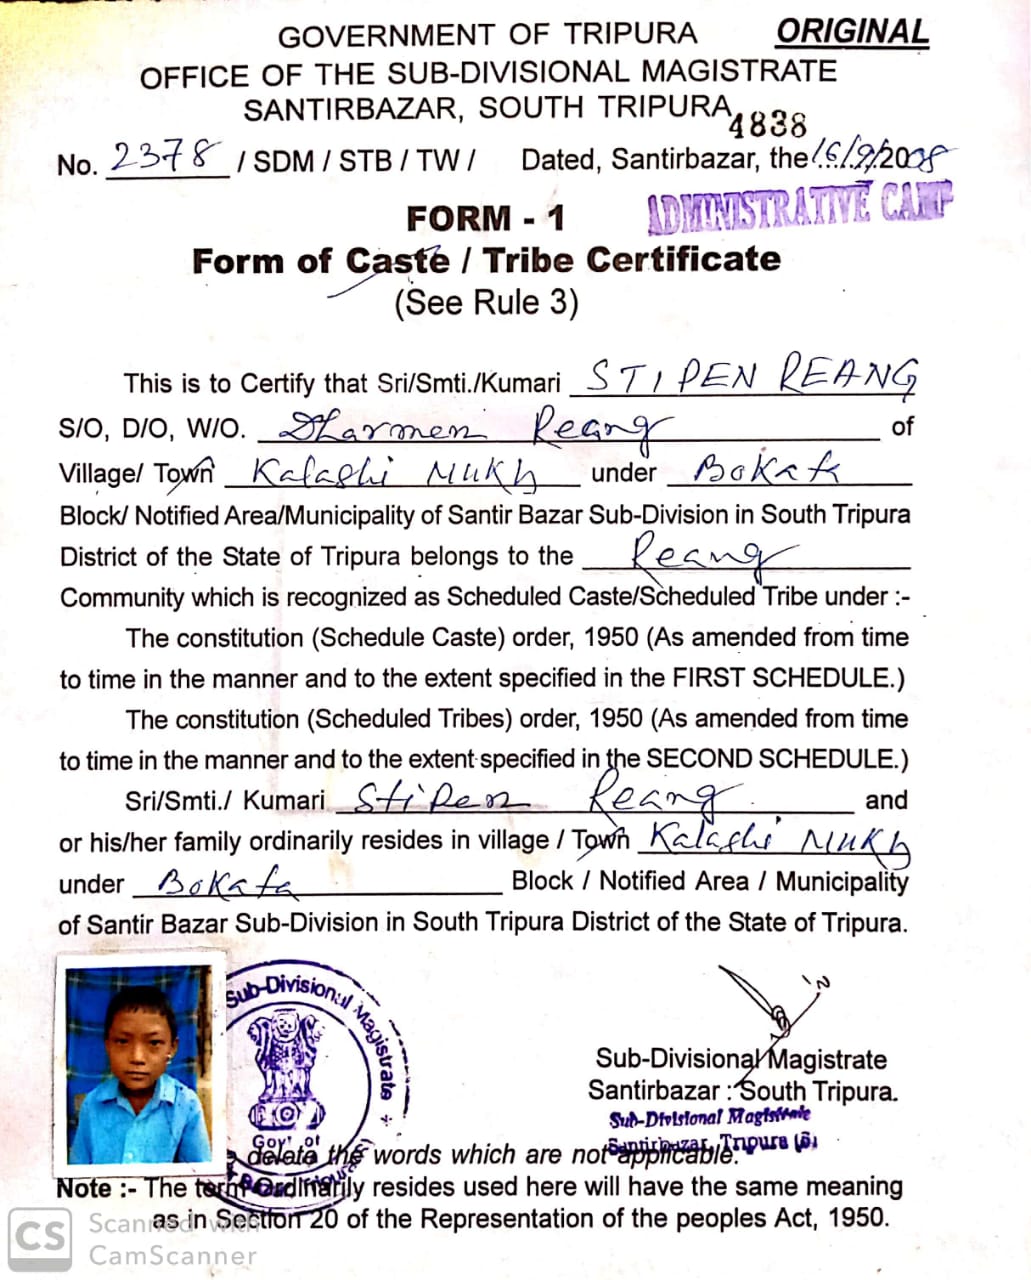 GOVERNMENT OF TRIPURA ORIGINAL
OFFICE OF THE SUB-DIVISIONAL MAGISTRATE
SANTIRBAZAR, SOUTH TRIPURA
4838
No. 2378 / SDM / STB / TW / Dated, Santirbazar, the 16/9/2008
ADMINISTRATIVE CAMP
FORM - 1
Form of Caste / Tribe Certificate
(See Rule 3)
This is to Certify that Sri/Smti./Kumari STIPEN REANG
S/O, D/O, W/O. Dharmen Reang of
Village/ Town Kalashi MUKh under BoKafa
Block/ Notified Area/Municipality of Santir Bazar Sub-Division in South Tripura
District of the State of Tripura belongs to the Reang
Community which is recognized as Scheduled Caste/Scheduled Tribe under :-
The constitution (Schedule Caste) order, 1950 (As amended from time
to time in the manner and to the extent specified in the FIRST SCHEDULE.)
The constitution (Scheduled Tribes) order, 1950 (As amended from time
to time in the manner and to the extent specified in the SECOND SCHEDULE.)
Sri/Smti./ Kumari Stipen Reang and
or his/her family ordinarily resides in village / Town Kalashi MUKh
under BoKafa Block / Notified Area / Municipality
of Santir Bazar Sub-Division in South Tripura District of the State of Tripura.
Sub-Divisional Magistrate
Govt of
Sub-Divisional Magistrate
Santirbazar : South Tripura.
Sub-Divisional Magistrate
Santirbazar, Tripura (S)
delete the words which are not applicable.
Note :- The term Ordinarily resides used here will have the same meaning
as in Section 20 of the Representation of the peoples Act, 1950.
CS Scanned with
CamScanner